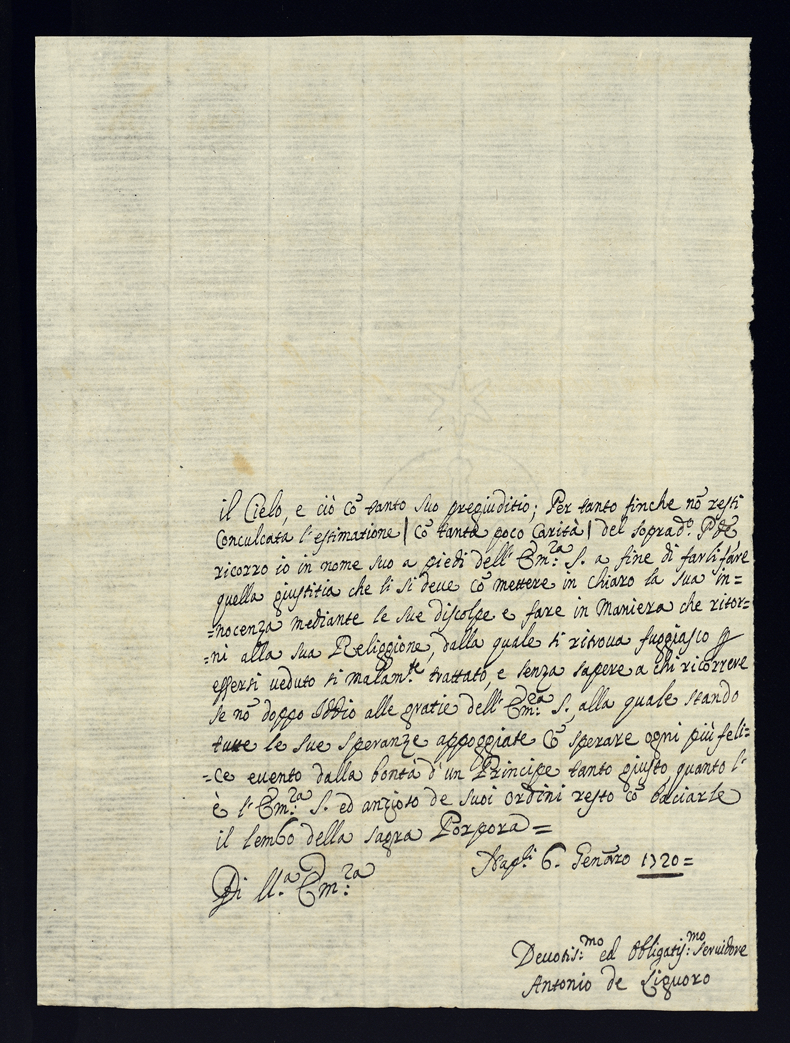 il Cielo, e ciò cō tanto suo pregiuditio; Per tanto finche nō resti
Conculcata l'estimatione | cō tanta poco Carità | del soprad.º P̃re
ricorro io in nome suo a piedi dell' Em:za S. a fine di farli fare
quella giustitia che li si deve cō mettere in chiaro la sua in=
=nocenza mediante le sue discolpe e fare in Maniera che ritor=
=ni alla sua Religgione, dalla quale si ritrova fuggiasco ꝑ
essersi veduto si malam.te trattato, e senza sapere a chi ricorrere
se nō doppo Iddio alle gratie dell' Em:za S., alla quale stando
tutte le sue speranze appoggiate cō sperare ogni più feli=
=ce evento dalla bontà d'un Principe tanto giusto quanto l'
è l' Em:za S. ed anzioso de suoi ordini resto cō baciarle
il lembo della sagra Porpora=
Nap.li 6. Genāro 1720=
Di V.a Em:za
Devotis:mo ed Obligatis:mo servidore
Antonio de Liguoro